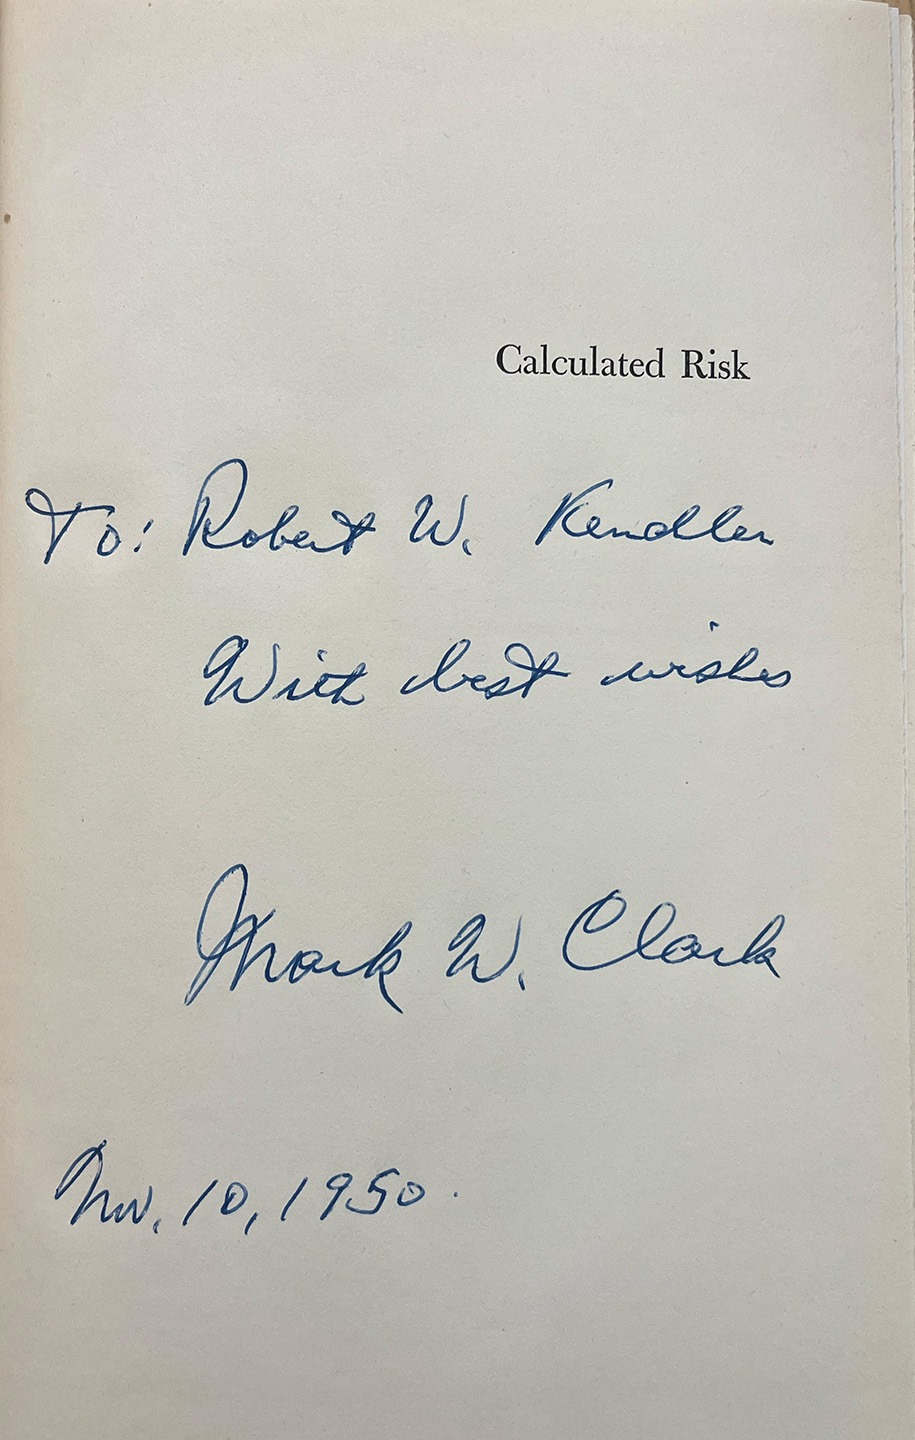 Calculated Risk
To: Robert W. Kendler
With best wishes
Mark W. Clark
Nov. 10, 1950.